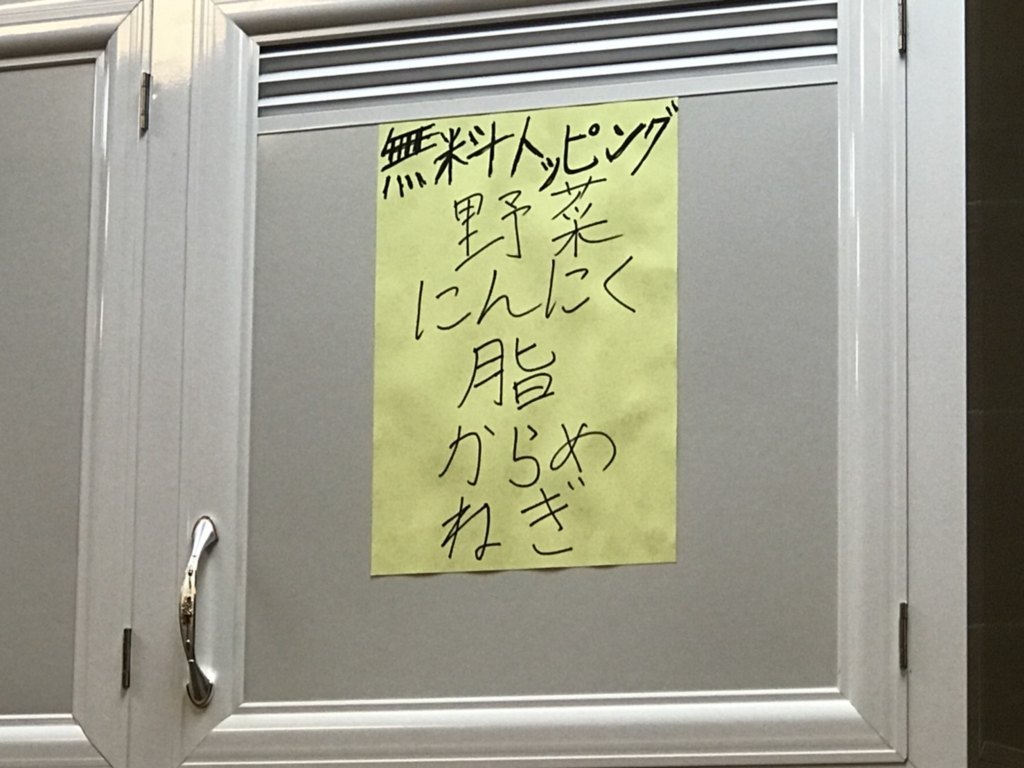 無料トッピング
野菜
にんにく
脂
からめ
ねぎ